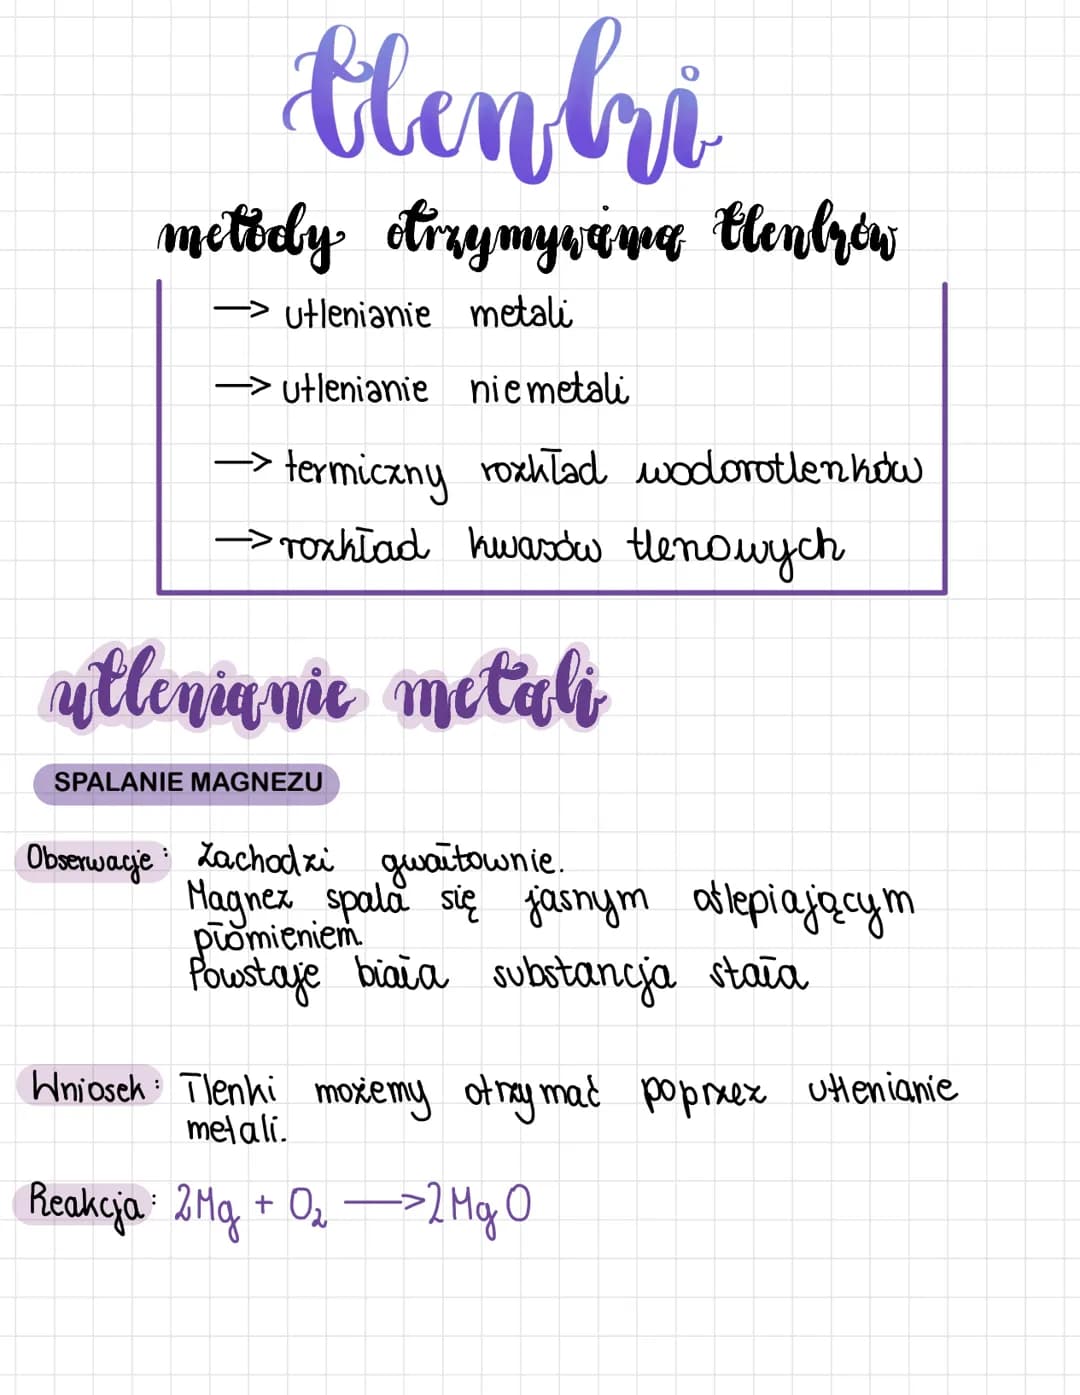 tlenki
metody otrzymywania tlenków
—> utlenianie metali
—> utlenianie niemetali
—> termiczny rozkład wodorotlenków
—> rozkład kwasów tlenowych
utlenianie metali
SPALANIE MAGNEZU
Obserwacje: Zachodzi gwałtownie.
Magnez spala się jasnym oślepiającym
płomieniem.
Powstaje biała substancja stała
Wniosek: Tlenki możemy otrzymać poprzez utlenianie
metali.
Reakcja: 2Mg + O₂ —> 2MgO